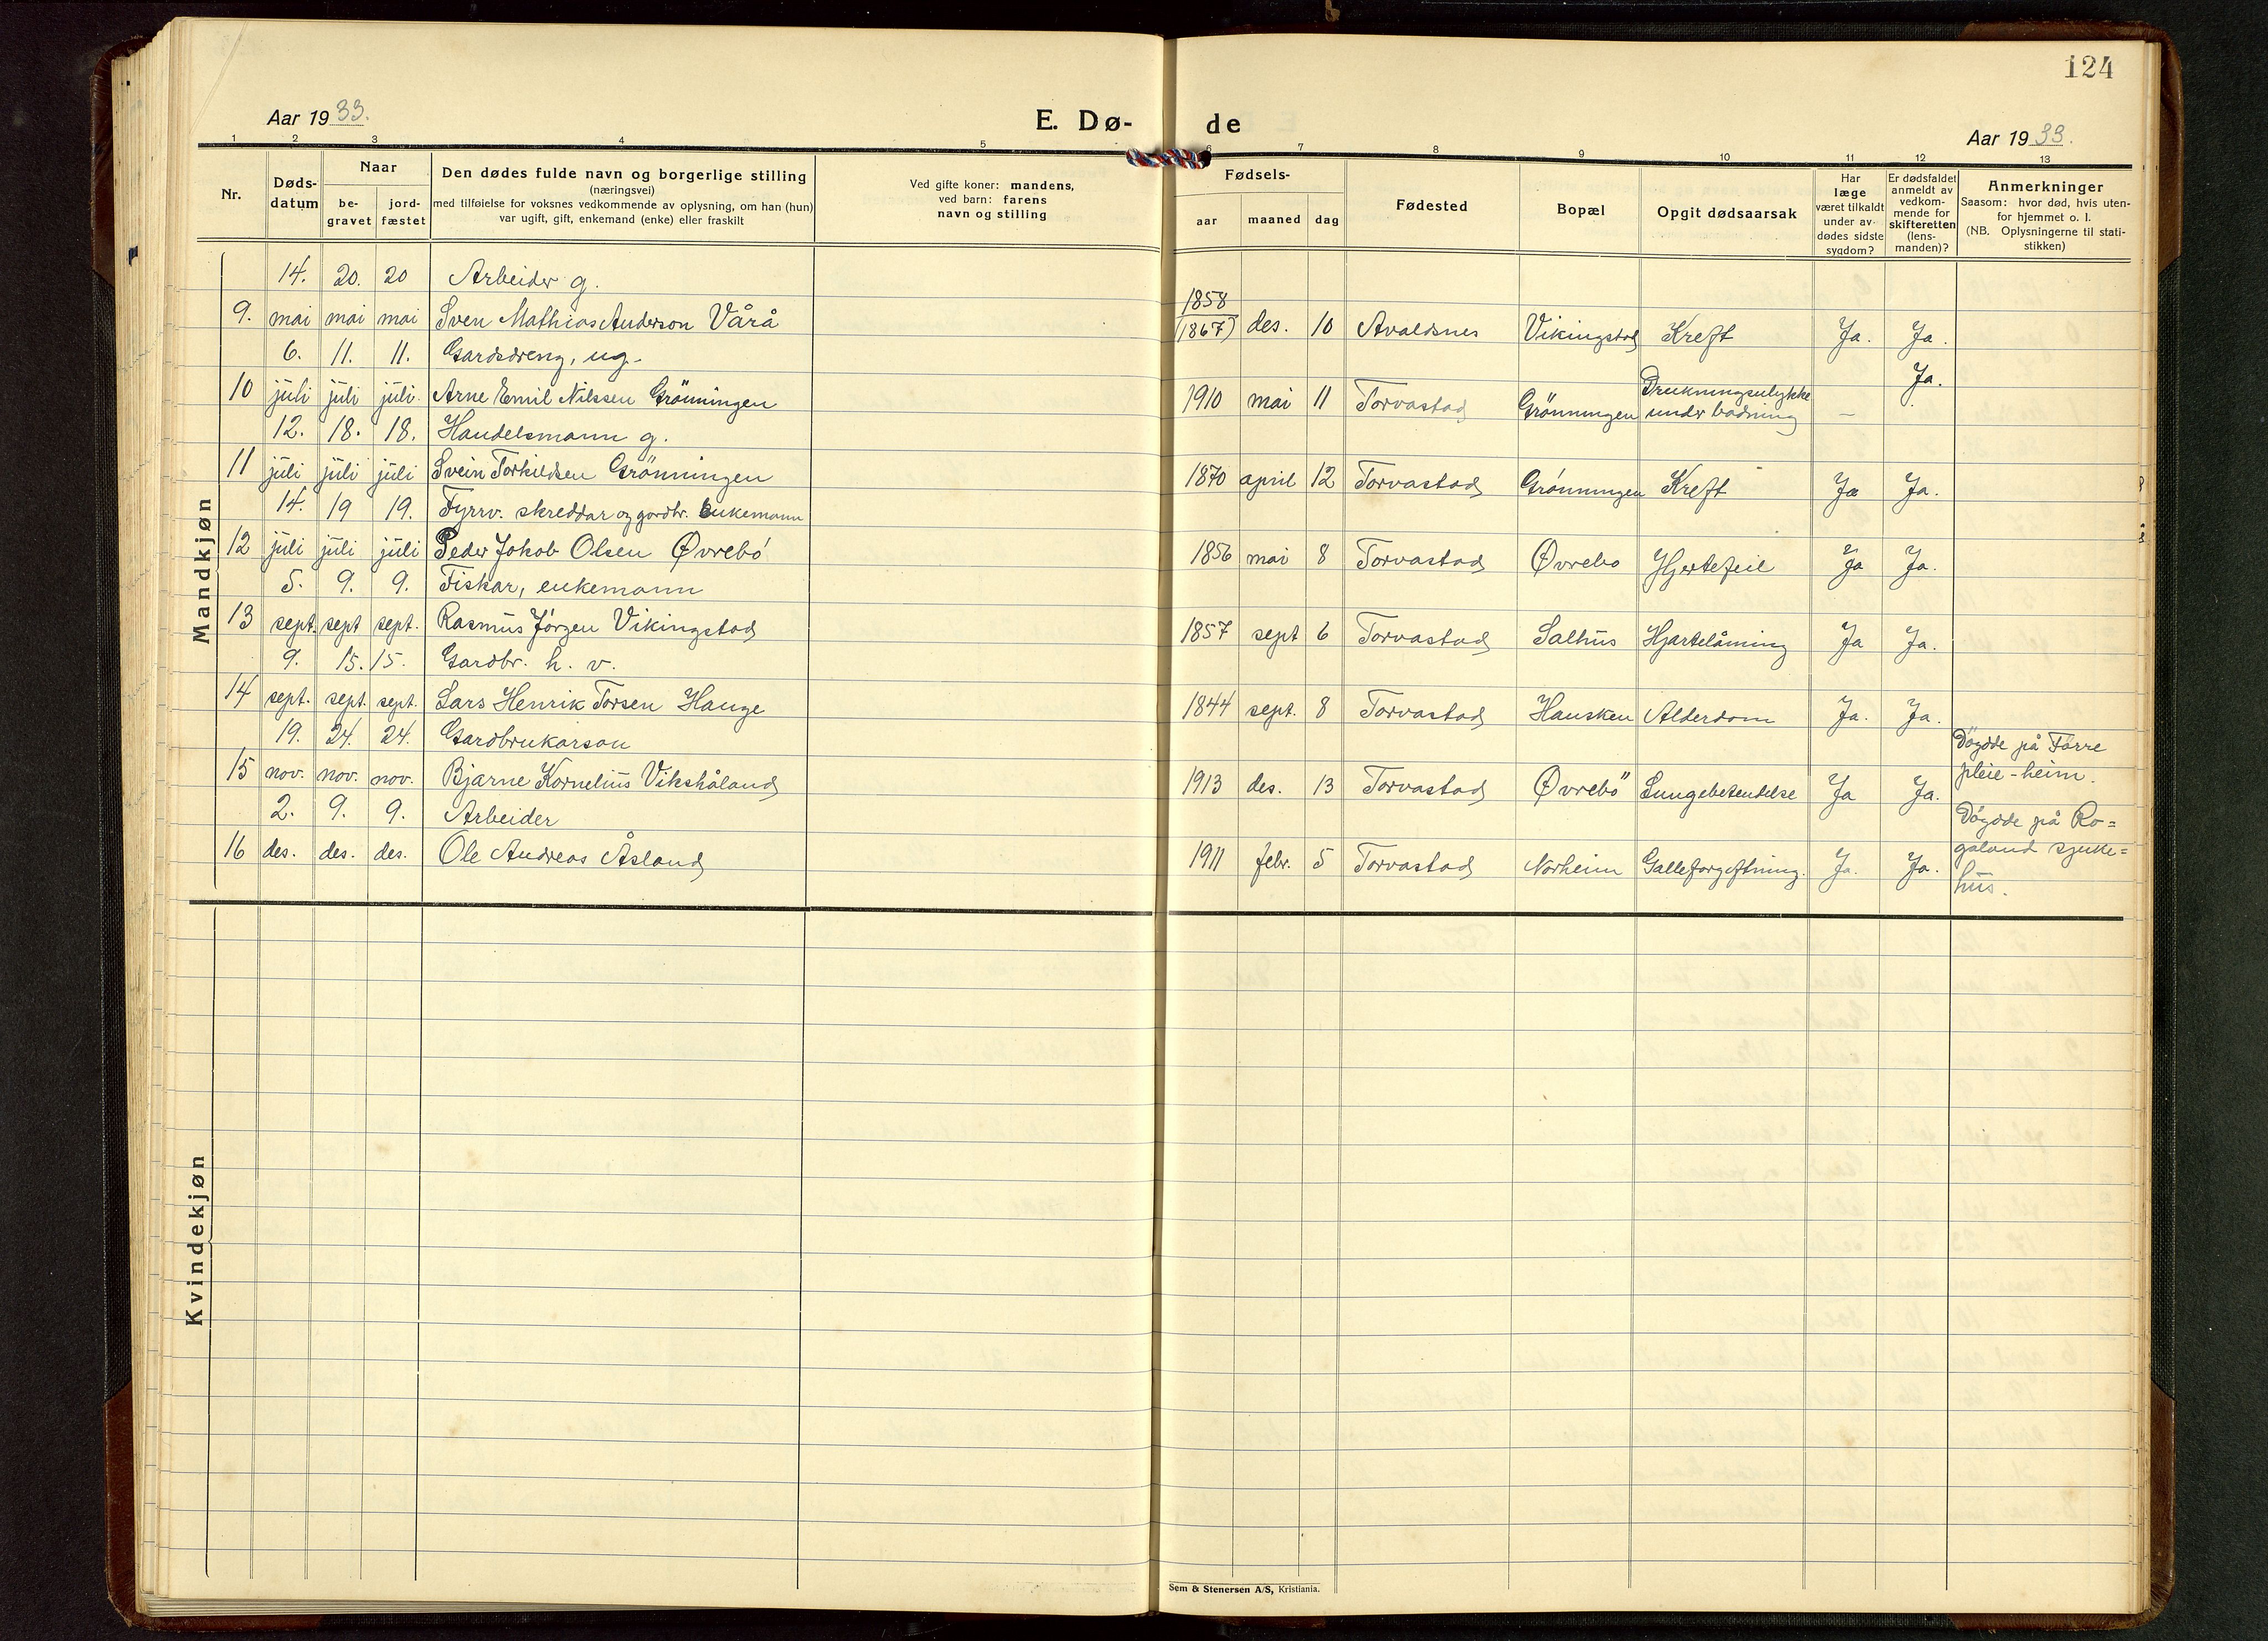 124
Aar 1933.
E. Dø-
de
Aar 1933.
1 2 3 4 5 6 7 8 9 10 11 12 13
Nr.
Døds-
datum
Naar
be-
gravet
jord-
fæstet
Den dødes fulde navn og borgerlige stilling
(næringsvei)
med tilføielse for voksnes vedkommende av oplysning, om han (hun)
var ugift, gift, enkemand (enke) eller fraskilt
Ved gifte koner: mandens,
ved barn: farens
navn og stilling
Fødsels-
aar maaned dag
Fødested
Bopæl
Opgit dødsaarsak
Har
læge
været tilkaldt
under av-
dødes sidste
sygdom?
Er dødsfaldet
anmeldt av
vedkom-
mende for
skifteretten
(lens-
manden)?
Anmerkninger
Saasom: hvor død, hvis uten-
for hjemmet o. l.
(NB. Oplysningerne til stati-
stikken)
Mandkjøn
14. 20. 20 Arbeider g.
1858
9. mai mai mai Sven Mathias Anderson Vårå (1867) des. 10 Avaldsnes Vikingstad Kreft Ja. Ja.
6. 11. 11. Gardsdreng, ug.
Drukningsulykke Ja.
10 juli juli juli. Arne Emil Nilssen Grönningen 1910 mai 11 Torvastad Grönningen under badning —
12. 18. 18. Handelsmann g.
11 juli juli juli Svein Torkildsen Grönningen 1870 april 12 Torvastad Grönningen Kreft Ja Ja.
14. 19 19. Fyrrv. skreddar og gardbr. Enkemann
12 juli juli juli Peder Jakob Olsen Øvrebö 1856 mai 8 Torvastad Øvrebo Hjertefeil Ja Ja.
5. 9. 9. Fiskar, enkemann
13 sept. sept sept. Rasmus Jörgen Vikingstad 1857 sept 6 Torvastad Salhus Hjartelåming Ja Ja.
9. 15. 15. Gardbr. h. v.
14 sept. sept. sept. Lars Henrik Torsen Hauge 1844 sept. 8 Torvastad Hausken Alderdom Ja. Ja.
19. 24. 24. Gardbrukarson
Döydde på Förre
15 nov. nov. nov. Bjarne Kornelius Vikshåland 1913 des. 13 Torvastad Øvrebö Lungebetendelse Ja Ja.
pleie-heim.
2. 9. 9. Arbeider
Döydde på Ro=
16 des. des. des. Ole Andreas Åsland 1911 febr. 5 Torvastad Norheim Galleforgiftning. Ja. Ja.
galand sjuke=
hus.
Kvindekjøn
Sem & Stenersen A/S, Kristiania.